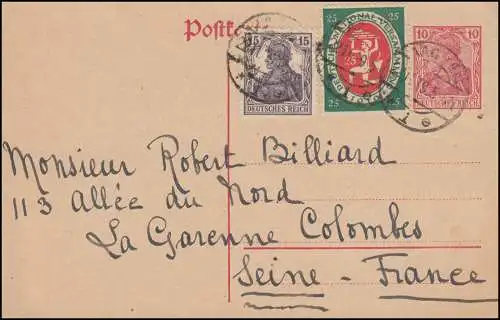 Postk
15 15
DEUTSCHES REICH
25 25
DEUTSCHE NATIONALVERSAMMLUNG 1919
25 25
10 10
DEUTSCHES REICH
Monsieur Robert Billiard
113 Allée du Nord
La Garenne Colombes
Seine - France